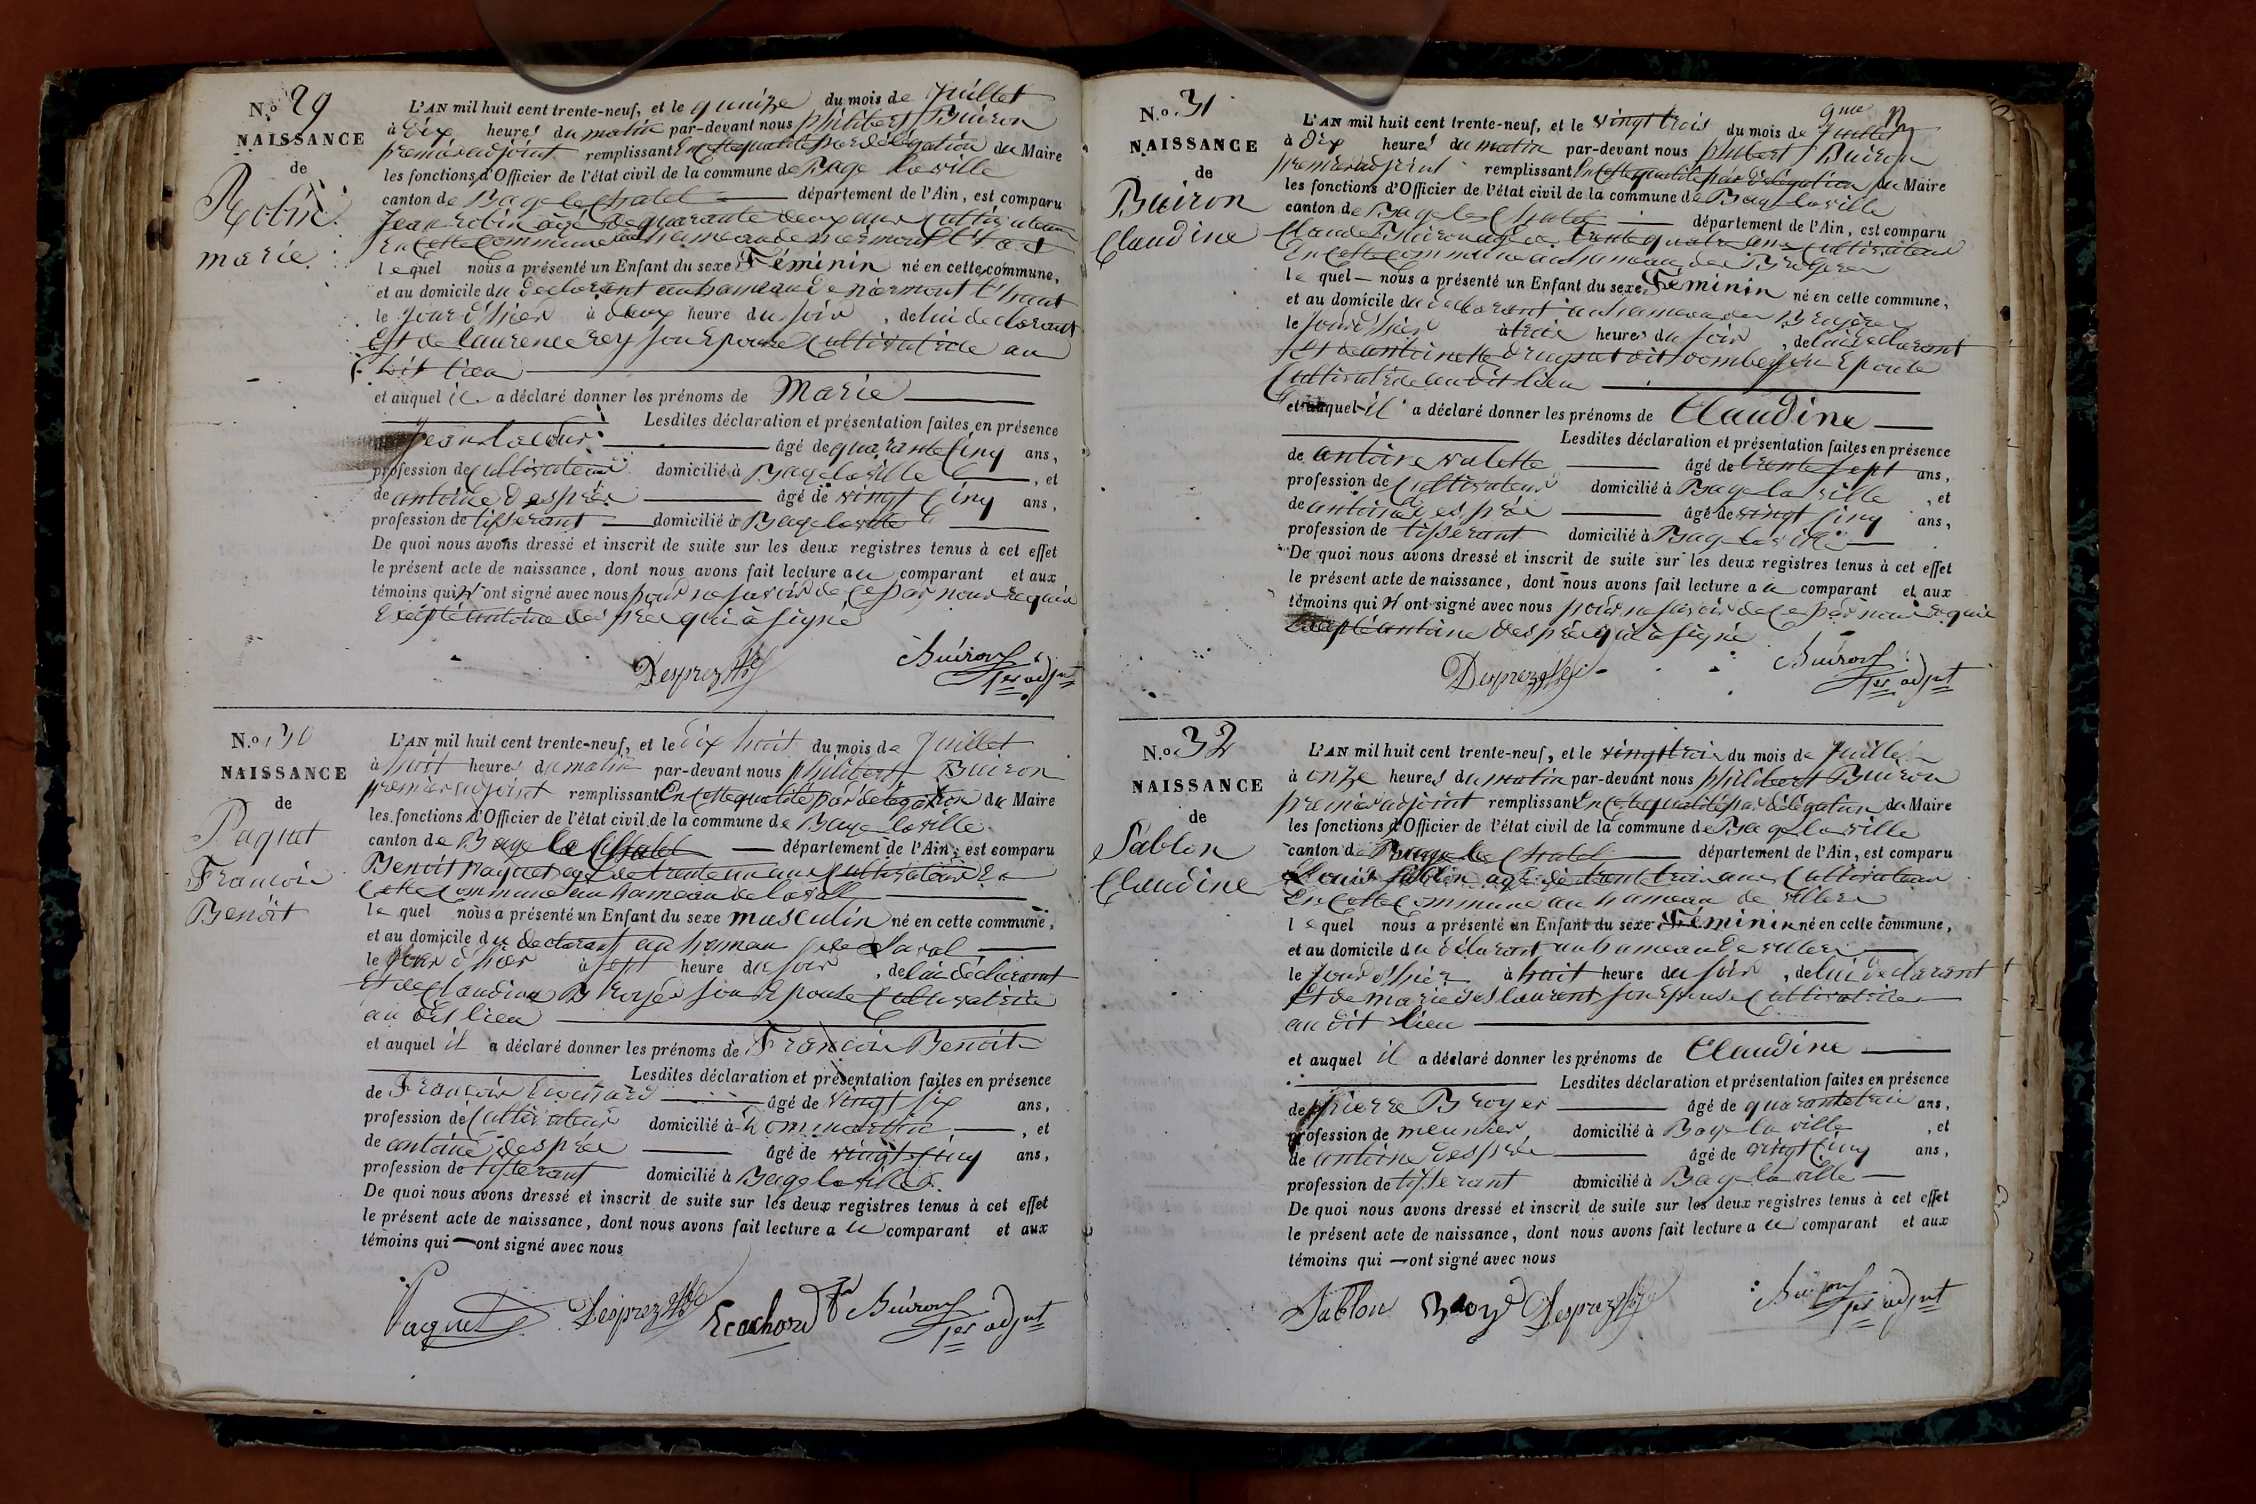 N.o 29
NAISSANCE
de
Robin
marie
L'AN mil huit cent trente-neuf, et le quinze du mois de Juillet
à dix heures du matin par-devant nous philibert Buiron
premier adjoint remplissant En cette qualité par délégation du Maire
les fonctions d'Officier de l'état civil de la commune de Bage la ville
canton de Bage le Chatel département de l'Ain, est comparu
Jean robin agé de quarante deux ans Cultivateur
En cette Commune au hameau de
lequel nous a présenté un Enfant du sexe Féminin né en cette commune,
et au domicile du declarant au hameau de
le jour d'hier à deux heure du soir, de lui declarant
Et de laurence rey son Epouse Cultivatrice au
dit lieu
et auquel il a déclaré donner les prénoms de Marie
Lesdites déclaration et présentation faites en présence
Jean âgé de quarante Cinq ans,
profession de Cultivateur domicilié à Bage la ville, et
de antoine despré âgé de vingt Cinq ans,
profession de tisserant domicilié à Bage la ville
De quoi nous avons dressé et inscrit de suite sur les deux registres tenus à cet effet
le présent acte de naissance, dont nous avons fait lecture au comparant et aux
témoins qui n'ont signé avec nous pour ne savoir de ce par nous requis
Excepté antoine despré qui à signé
Desprez Buiron
1er adjnt
N.o 30
NAISSANCE
de
Paquet
Francois
Benoit
L'AN mil huit cent trente-neuf, et le dix huit du mois de Juillet
à huit heures du matin par-devant nous philibert Buiron
premier adjoint remplissant En cette qualité par délégation du Maire
les fonctions d'Officier de l'état civil de la commune de Bage la ville
canton de Bage le Chatel département de l'Ain, est comparu
Benoit paquet agé de trente un ans Cultivateur En
Cette Commune au hameau de laval
lequel nous a présenté un Enfant du sexe masculin né en cette commune,
et au domicile du declarant au hameau de Laval
le jour d'hier à sept heure du soir, de lui déclarant
Et de Claudine Broyer son Epouse Cultivatrice
au dit lieu
et auquel il a déclaré donner les prénoms de Francois Benoit
Lesdites déclaration et présentation faites en présence
de Francois Ecochard âgé de vingt six ans,
profession de Cultivateur domicilié à Dommartin, et
de antoine despré âgé de vingt Cinq ans,
profession de tisserant domicilié à Bage la ville
De quoi nous avons dressé et inscrit de suite sur les deux registres tenus à cet effet
le présent acte de naissance, dont nous avons fait lecture au comparant et aux
témoins qui ont signé avec nous
Paquet Desprez Ecochard Buiron
1er adjnt
N.o 31
NAISSANCE
de
Buiron
Claudine
9me
L'AN mil huit cent trente-neuf, et le vingt trois du mois de Juillet
à dix heures du matin par-devant nous philibert Buiron
premier adjoint remplissant En cette qualité par délégation du Maire
les fonctions d'Officier de l'état civil de la commune de Bage la ville
canton de Bage le Chatel département de l'Ain, est comparu
Claude Buiron agé de trente quatre ans Cultivateur
En cette Commune au hameau des Broyeres
lequel nous a présenté un Enfant du sexe Féminin né en cette commune,
et au domicile du declarant au hameau des Broyeres
le jour d'hier à trois heures du soir, de lui declarant
Et de antoinette dit son Epouse
Cultivatrice au dit lieu
et auquel il a déclaré donner les prénoms de Claudine
Lesdites déclaration et présentation faites en présence
de antoine valette âgé de trente sept ans,
profession de Cultivateur domicilié à Bage la ville, et
de antoine despré âgé de vingt Cinq ans,
profession de tisserant domicilié à Bage la ville
De quoi nous avons dressé et inscrit de suite sur les deux registres tenus à cet effet
le présent acte de naissance, dont nous avons fait lecture au comparant et aux
témoins qui n'ont signé avec nous pour ne savoir de ce par nous requis
Excepté antoine despré qui à signé
Desprez Buiron
1er adjnt
N.o 32
NAISSANCE
de
Sablon
Claudine
L'AN mil huit cent trente-neuf, et le vingt trois du mois de Juillet
à onze heures du matin par-devant nous philibert Buiron
premier adjoint remplissant En cette qualité par délégation du Maire
les fonctions d'Officier de l'état civil de la commune de Bage la ville
canton de Bage le Chatel département de l'Ain, est comparu
Louis Sablon agé de trente trois ans Cultivateur
En cette Commune au hameau de
lequel nous a présenté un Enfant du sexe Féminin né en cette commune,
et au domicile du déclarant au hameau de
le jour d'hier à huit heure du soir, de lui declarant
Et de marie laurent son Epouse Cultivatrice
au dit lieu
et auquel il a déclaré donner les prénoms de Claudine
Lesdites déclaration et présentation faites en présence
de pierre Broyer âgé de quarante trois ans,
profession de meunier domicilié à Bage la ville, et
de antoine despré âgé de vingt Cinq ans,
profession de tisserant domicilié à Bage la ville
De quoi nous avons dressé et inscrit de suite sur les deux registres tenus à cet effet
le présent acte de naissance, dont nous avons fait lecture au comparant et aux
témoins qui ont signé avec nous
Sablon Broyé Desprez Buiron
1er adjnt